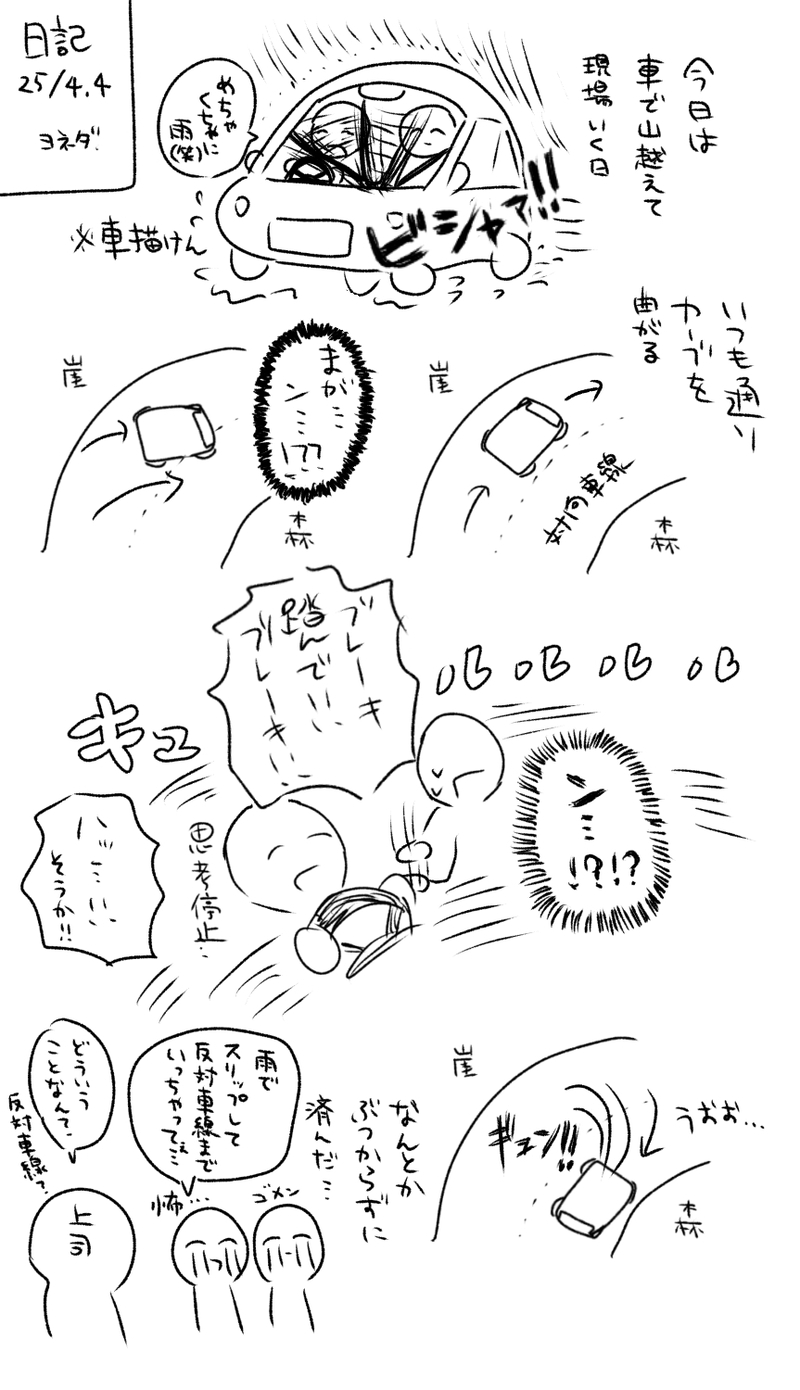 日記
25/4.4
ヨネダ
今日は
車で山越えて
現場いく日
めちゃ
くちゃに
雨(笑)
※車描けん
ビシャァ!!
いつも通り
カーブを
曲がる
崖
対向車線
森
まが…
ン……
!??
崖
森
ン…
!?!?
ブレーキ
踏んでぃ
ブレーキぃ
キュ
思考停止…
ハッ…ぃ
そうか!!
崖
うおお…
ギュン!!
森
なんとか
ぶつからずに
済んだ…
雨で
スリップして
反対車線まで
いっちゃってぇ…
怖…
ゴメン
どういう
ことなんて?
反対車線?
上司